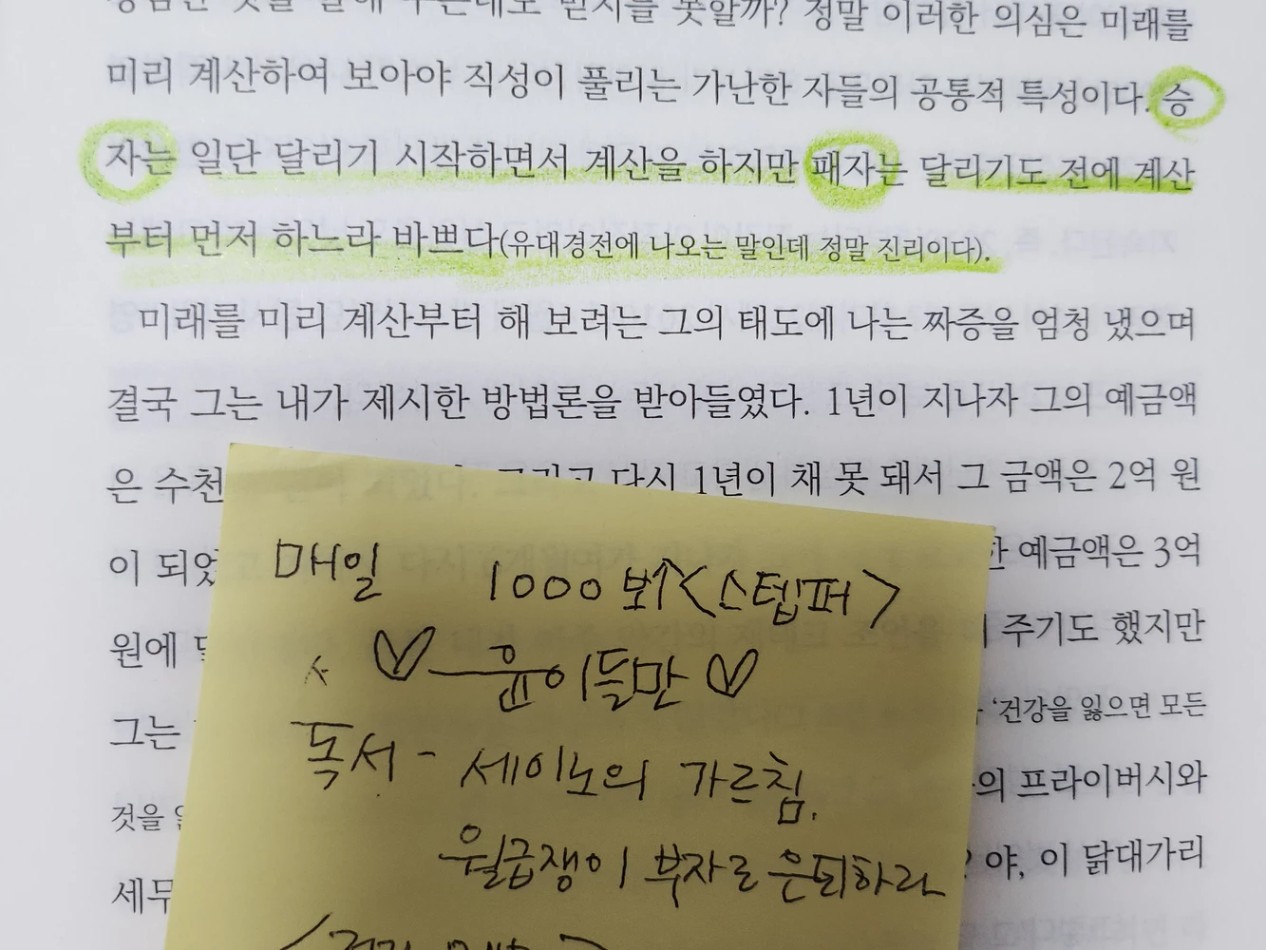 미래를
미리 계산하여 보아야 직성이 풀리는 가난한 자들의 공통적 특성이다. 승
자는 일단 달리기 시작하면서 계산을 하지만 패자는 달리기도 전에 계산
부터 먼저 하느라 바쁘다(유대경전에 나오는 말인데 정말 진리이다).
미래를 미리 계산부터 해 보려는 그의 태도에 나는 짜증을 엄청 냈으며
결국 그는 내가 제시한 방법론을 받아들였다. 1년이 지나자 그의 예금액
은 수천 다시 1년이 채 못 돼서 그 금액은 2억 원
이 예금액은 3억
원에 주기도 했지만
그는 '건강을 잃으면 모든
것을 의 프라이버시와
야, 이 닭대가리
매일 1000보↑<스텝퍼>
♡ 윤이들만 ♡
독서 - 세이노의 가르침.
월급쟁이 부자로 은퇴하라